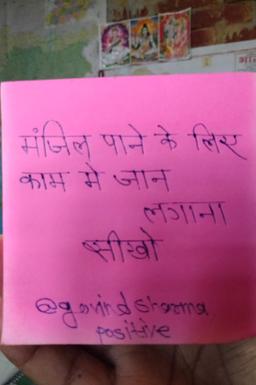 मंजिल पाने के लिए
काम मे जान
लगाना
सीखो
@govind sharma
positive